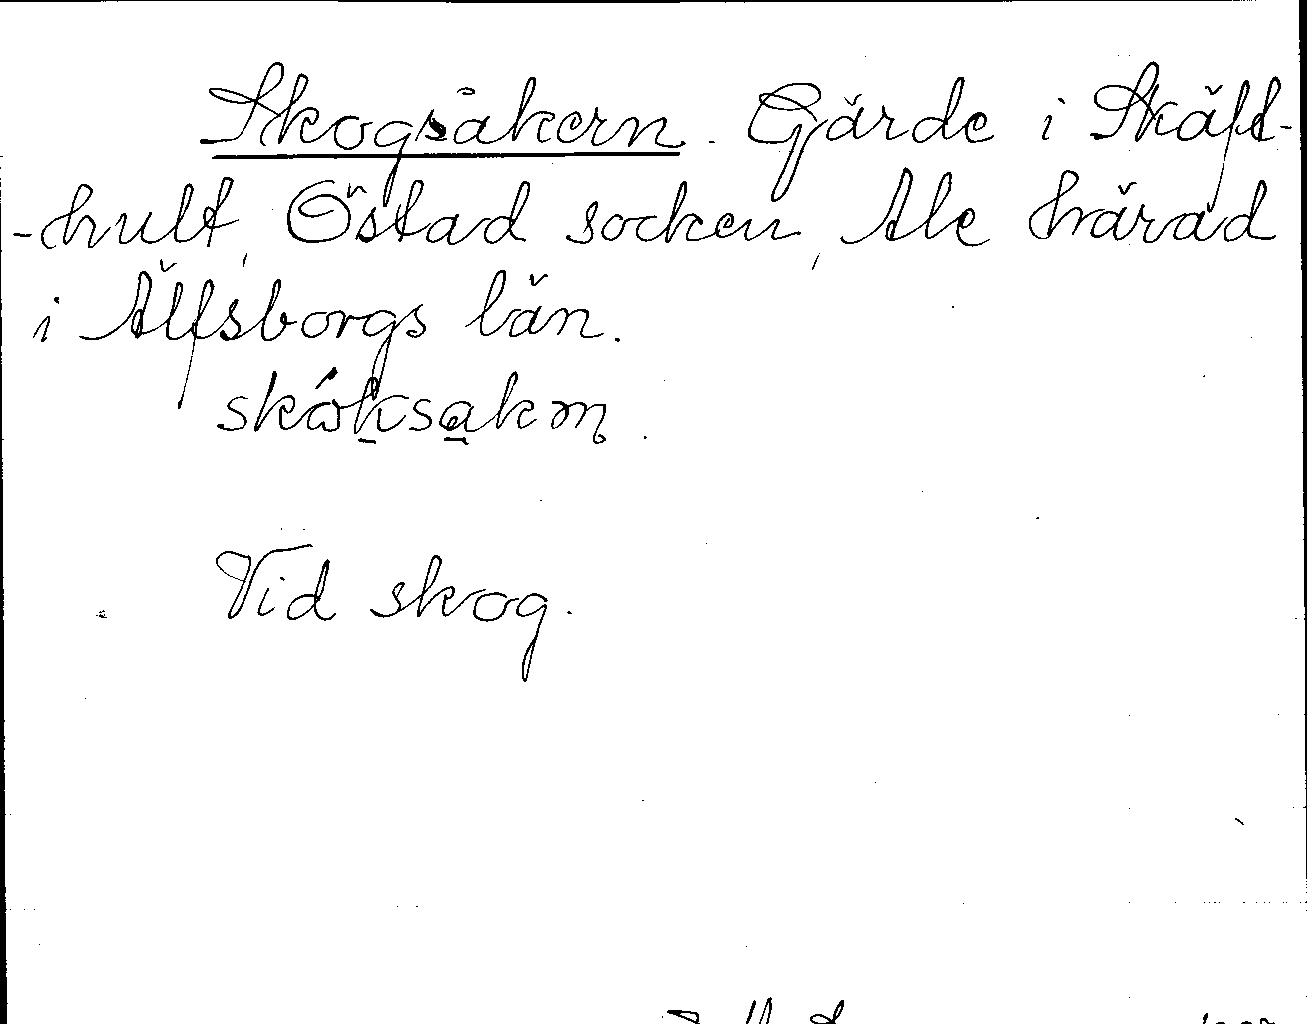 Skogsåkern. Gärde i Skäft-
-hult, Östad socken, Ale härad
i Älfsborgs län.
skóksakm.
Vid skog.